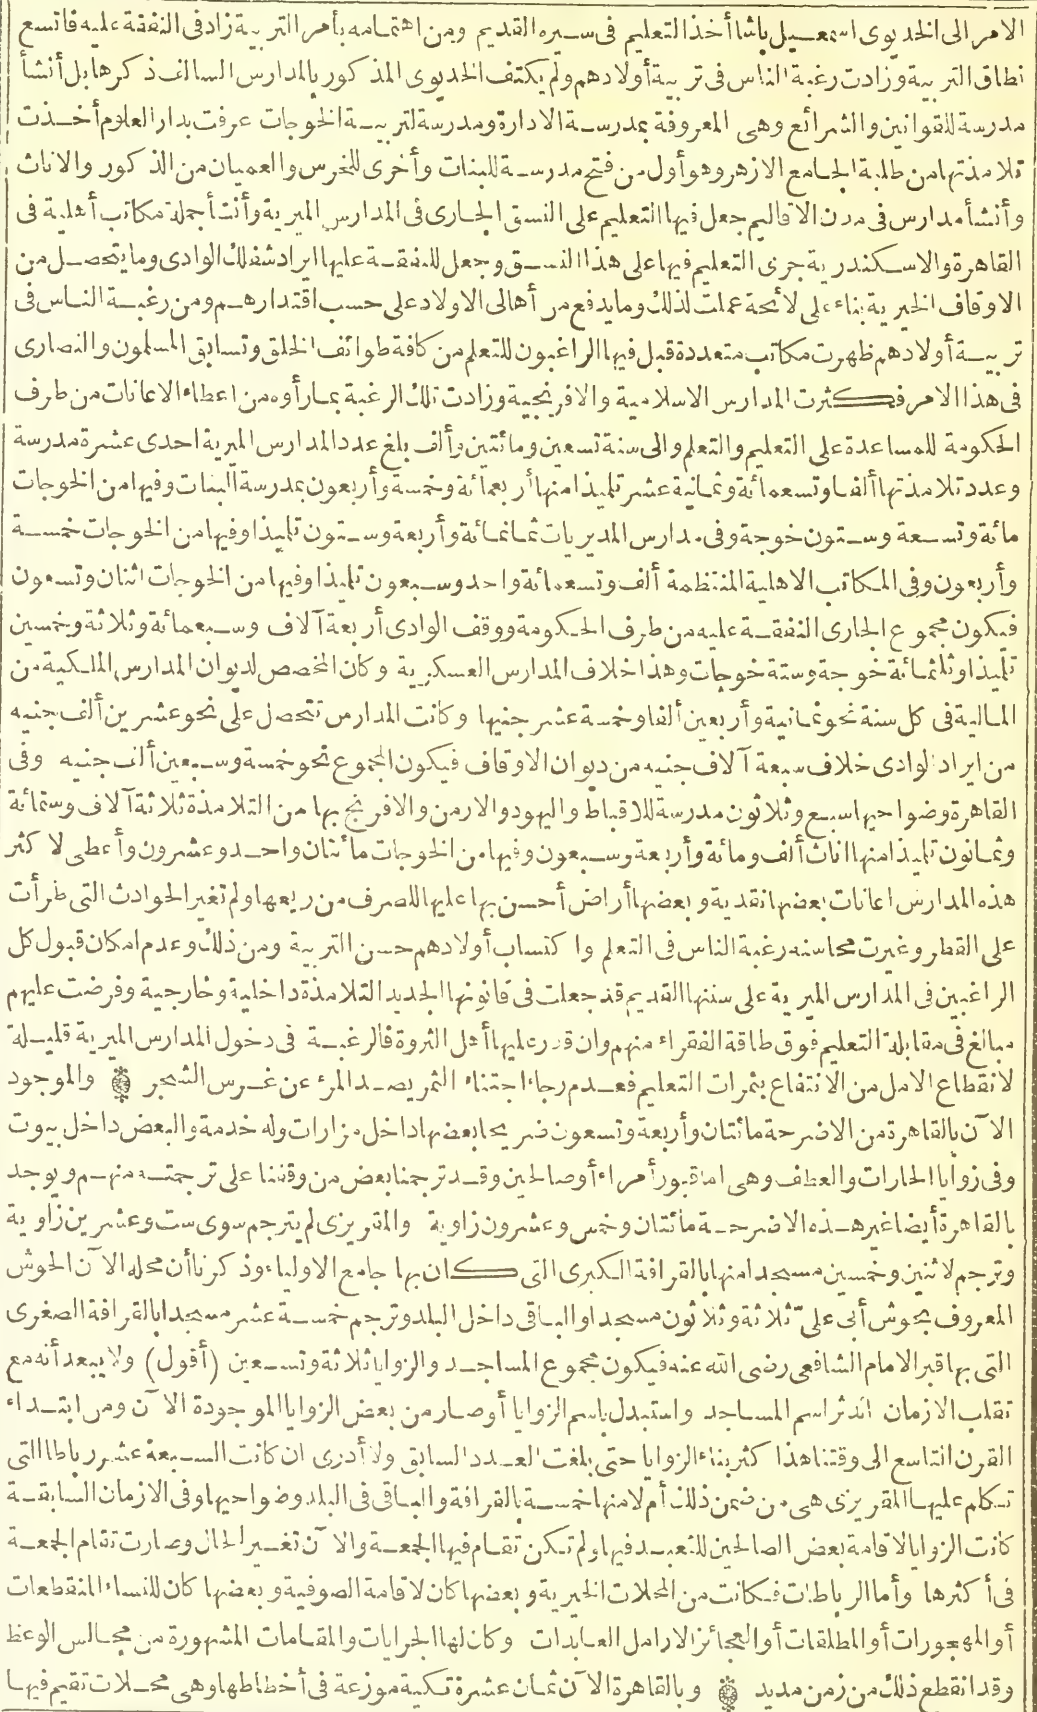 الامر الى الخديوى اسمعيل باشا أخذ التعليم فى سيره القديم ومن اهتمامه بأمر التربية زاد فى النفقة عليه فاتسع
نطاق التربية وزادت رغبة الناس فى تربية أولادهم ولم يكتف الخديوى المذكور بالمدارس السالف ذكرها بل أنشأ
مدرسة للقوانين والشرائع وهى المعروفة بمدرسة الادارة ومدرسة لتربية الخوجات عرفت بدار العلوم أخذت
تلامذتها من طلبة الجامع الازهر وهو أول من فتح مدرسة للبنات وأخرى للخرس والعميان من الذكور والاناث
وأنشأ مدارس فى مدن الاقاليم جعل فيها التعليم على النسق الجارى فى المدارس الميرية وأنشأ جملة مكاتب أهلية فى
القاهرة والاسكندرية جرى التعليم فيها على هذا النسق وجعل للنفقة عليها ايراد شفلك الوادى وما يتحصل من
الاوقاف الخيرية بناء على لائحة عملت لذلك وما يدفع من أهالى الاولاد على حسب اقتدارهم ومن رغبة الناس فى
تربية أولادهم ظهرت مكاتب متعددة قبل فيها الراغبون للتعلم من كافة طوائف الخلق وتسابق المسلمون والنصارى
فى هذا الامر فكثرت المدارس الاسلامية والافرنجية وزادت تلك الرغبة بما رأوه من اعطاء الاعانات من طرف
الحكومة للمساعدة على التعليم والتعلم والى سنة تسعين ومائتين وألف بلغ عدد المدارس الميرية احدى عشرة مدرسة
وعدد تلامذتها ألفا وتسعمائة وثمانية عشر تلميذا منها أربعمائة وخمسة وأربعون بمدرسة البنات وفيها من الخوجات
مائة وتسعة وستون خوجة وفى مدارس المديريات ثمانمائة وأربعة وستون تلميذا وفيها من الخوجات خمسة
وأربعون وفى المكاتب الاهلية المنتظمة ألف وتسعمائة واحد وسبعون تلميذا وفيها من الخوجات اثنان وتسعون
فيكون مجموع الجارى النفقة عليه من طرف الحكومة ووقف الوادى أربعة آلاف وسبعمائة وثلاثة وخمسين
تلميذا وثلثمائة خوجة وستة خوجات وهذا خلاف المدارس العسكرية وكان المخصص لديوان المدارس الملكية من
المالية فى كل سنة نحو ثمانية وأربعين ألفا وخمسة عشر جنيها وكانت المدارس تتحصل على نحو عشرين ألف جنيه
من ايراد الوادى خلاف سبعة آلاف جنيه من ديوان الاوقاف فيكون المجموع نحو خمسة وسبعين ألف جنيه وفى
القاهرة وضواحيها سبع وثلاثون مدرسة للاقباط واليهود والارمن والافرنج بها من التلامذة ثلاثة آلاف وستمائة
وثمانون تلميذا منها اناث ألف ومائة وأربعة وسبعون وفيها من الخوجات مائتان واحد وعشرون وأعطى لاكثر
هذه المدارس اعانات بعضها نقدية وبعضها أراض أحسن بها عليها للصرف من ريعها ولم تغير الحوادث التى طرأت
على القطر وغيرت محاسنه رغبة الناس فى التعلم واكتساب أولادهم حسن التربية ومن ذلك وعدم امكان قبول كل
الراغبين فى المدارس الميرية على سننها القديم قد جعلت فى قانونها الجديد التلامذة داخلية وخارجية وفرضت عليهم
مبالغ فى مقابلة التعليم فوق طاقة الفقراء منهم وان قدر عليها أهل الثروة فالرغبة فى دخول المدارس الميرية قليلة
لانقطاع الامل من الانتفاع بثمرات التعليم فعدم رجاء اجتناء الثمر يصد المرء عن غرس الشجر والموجود
الآن بالقاهرة من الاضرحة مائتان وأربعة وتسعون ضريحا بعضها داخل مزارات وله خدمة والبعض داخل بيوت
وفى زوايا الحارات والعطف وهى اما قبور أمراء أو صالحين وقد ترجمنا بعض من وقفنا على ترجمته منهم ويوجد
بالقاهرة أيضا غير هذه الاضرحة مائتان وخمس وعشرون زاوية والمقريزى لم يترجم سوى ست وعشرين زاوية
وترجم لاثنين وخمسين مسجدا منها بالقرافة الكبرى التى كان بها جامع الاولياء وذكرنا أن محله الآن الحوش
المعروف بحوش أبى علىّ ثلاثة وثلاثون مسجدا والباقى داخل البلد وترجم خمسة عشر مسجدا بالقرافة الصغرى
التى بها قبر الامام الشافعى رضى الله عنه فيكون مجموع المساجد والزوايا ثلاثة وتسعين (أقول) ولا يبعد أنه مع
تقلب الازمان اندثر اسم المساجد واستبدل باسم الزوايا أو صار من بعض الزوايا الموجودة الآن ومن ابتداء
القرن التاسع الى وقتنا هذا كثر بناء الزوايا حتى بلغت العدد السابق ولا أدرى ان كانت السبعة عشر رباطا التى
تكلم عليها المقريزى هى من ضمن ذلك أم لا منها خمسة بالقرافة والباقى فى البلد وضواحيها وفى الازمان السابقة
كانت الزوايا لاقامة بعض الصالحين للتعبد فيها ولم تكن تقام فيها الجمعة والآن تغير الحال وصارت تقام الجمعة
فى أكثرها وأما الرباطات فكانت من المحلات الخيرية وبعضها كان لاقامة الصوفية وبعضها كان للنساء المنقطعات
أو المهجورات أو المطلقات أو العجائز الارامل العابدات وكان لها الجرايات والمقامات المشهورة من مجالس الوعظ
وقد انقطع ذلك من زمن مديد وبالقاهرة الآن ثمان عشرة تكية موزعة فى أخطاطها وهى محلات تقيم فيها